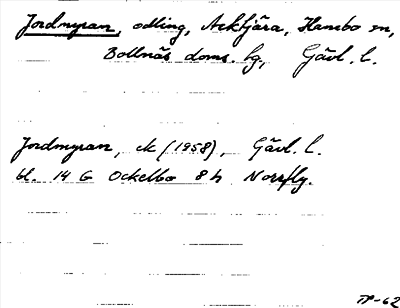 Jordmyran, odling, Acktjära, Hanebo sn,
Bollnäs doms. hg, Gävl. l.
Jordmyran, ek (1958), Gävl. l.
bl. 14 G Ockelbo 8 h Norrfly.
TP-62